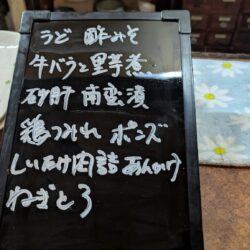 うど 酢みそ
牛バラと里芋煮
砂肝 南蛮漬
鶏つみれ ポンズ
しいたけ肉詰 あんかけ
ねぎとろ